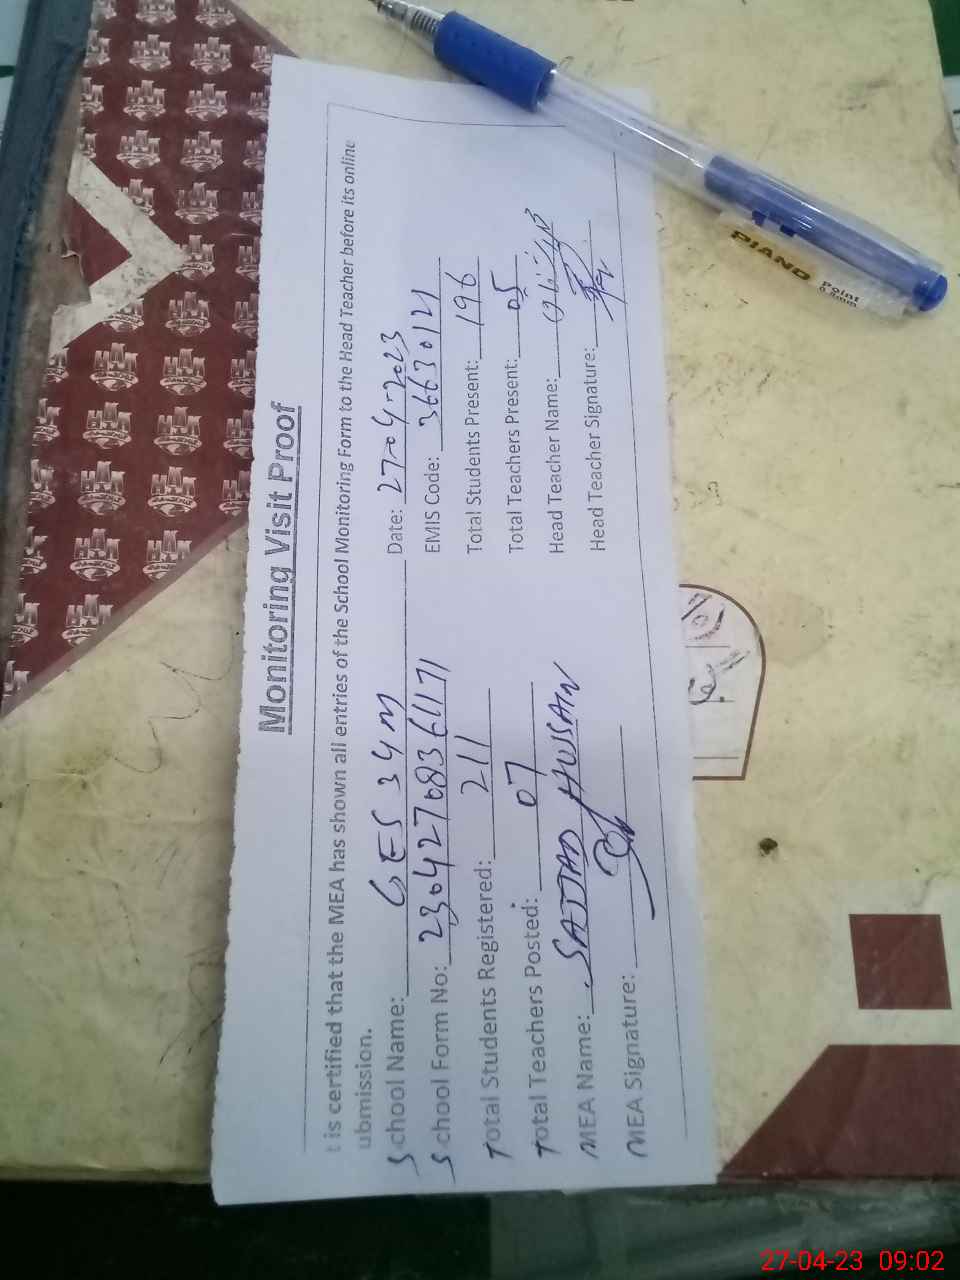 Monitoring Visit Proof
t is certified that the MEA has shown all entries of the School Monitoring Form to the Head Teacher before its online
ubmission.
School Name: GES 34M Date: 27-04-2023
School Form No: 23042708361171 EMIS Code: 36630121
Total Students Registered: 211 Total Students Present: 196
Total Teachers Posted: 07 Total Teachers Present: 05
MEA Name: SAJJAD HUSSAIN Head Teacher Name:
MEA Signature: Head Teacher Signature:
PIANO
Point
0.8mm
27-04-23 09:02